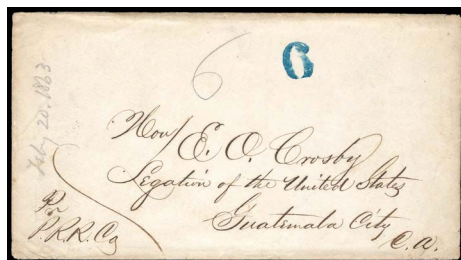 6
6
Feby 20, 1863
Hon/ E. O. Crosby
Legation of the United States
Guatemala City
C. A.
Pr
P.R.R.Co